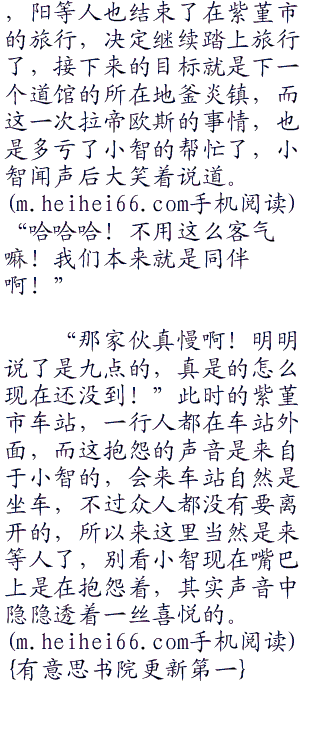 ，阳等人也结束了在紫堇市
的旅行，决定继续踏上旅行
了，接下来的目标就是下一
个道馆的所在地釜炎镇，而
这一次拉帝欧斯的事情，也
是多亏了小智的帮忙了，小
智闻声后大笑着说道。
(m.heihei66.com手机阅读)
“哈哈哈！不用这么客气
嘛！我们本来就是同伴
啊！”
“那家伙真慢啊！明明
说了是九点的，真是的怎么
现在还没到！”此时的紫堇
市车站，一行人都在车站外
面，而这抱怨的声音是来自
于小智的，会来车站自然是
坐车，不过众人都没有要离
开的，所以来这里当然是来
等人了，别看小智现在嘴巴
上是在抱怨着，其实声音中
隐隐透着一丝喜悦的。
(m.heihei66.com手机阅读)
{有意思书院更新第一}